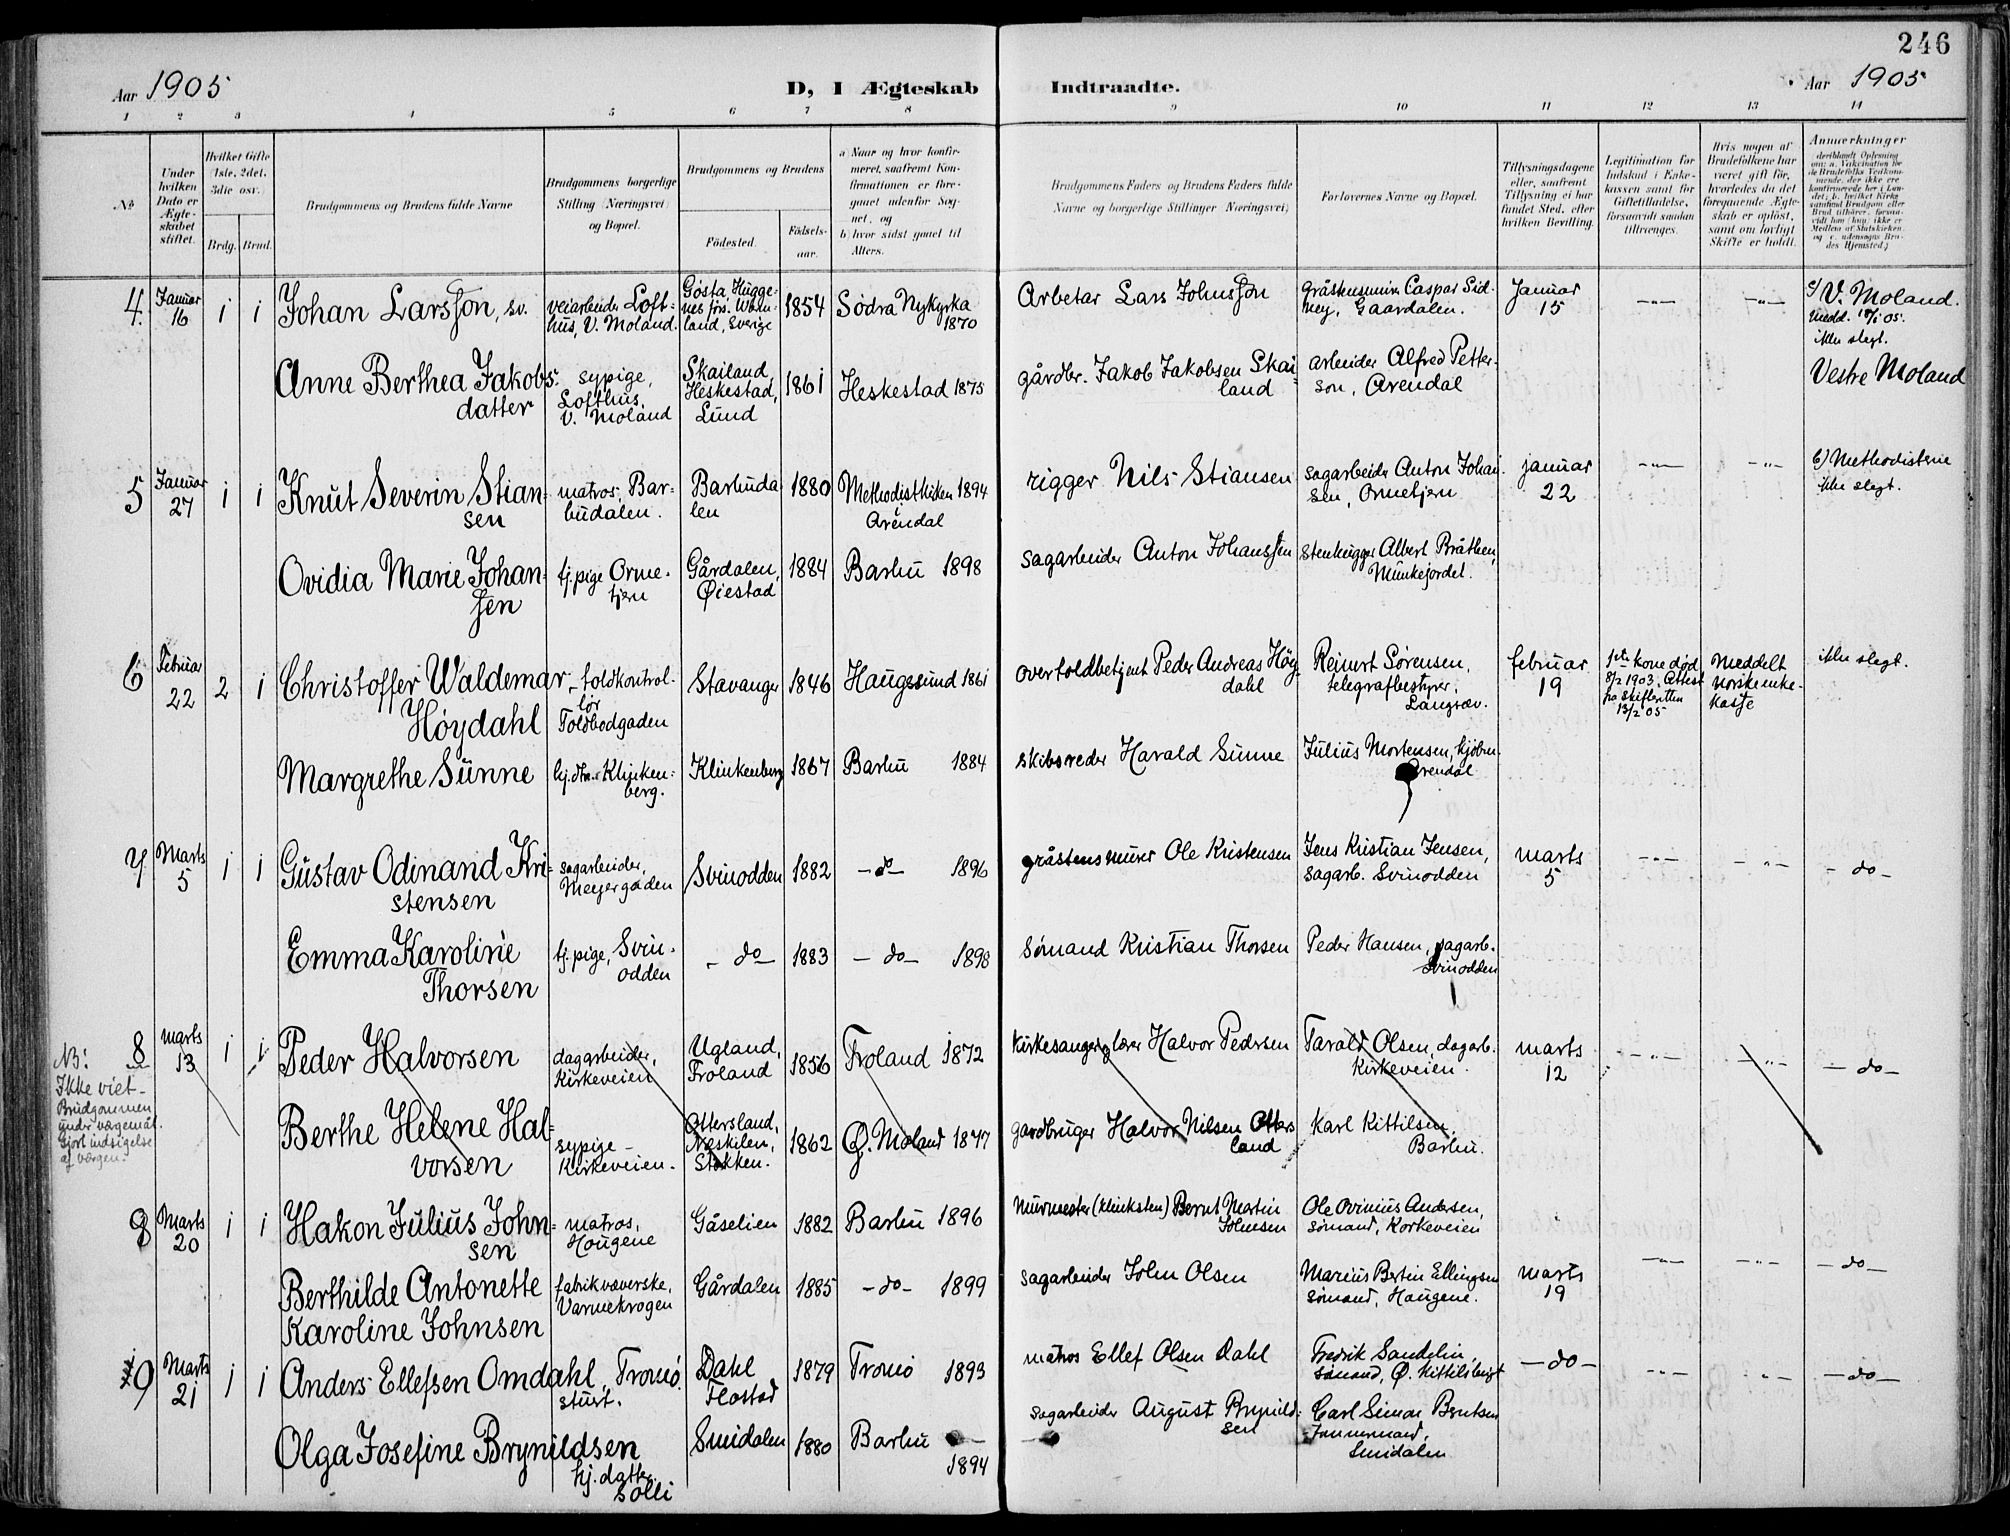 246
Aar 1905
D, I Ægteskab Indtraadte.
Aar 1905
1 2 3 4 5 6 7 8 9 10 11 12 13 14
No.
Under hvilken Dato er Ægteskabet stiftet.
Hvilket Gifte (1ste, 2det, 3die osv.)
Brdg. Brud.
Brudgommens og Brudens fulde Navne
Brudgommens borgerlige Stilling (Næringsvei) og Bopæl.
Brudgommens og Brudens
Fødested.
Fødselsaar.
a) Naar og hvor konfirmeret, saafremt Konfirmationen er foregaaet udenfor Sognet, og
b) hvor sidst gaaet til Alters.
Brudgommens Faders og Brudens Faders fulde Navne og borgerlige Stillinger (Næringsvei)
Forlovernes Navne og Bopæl.
Tillysningsdagene eller, saafremt Tillysning ei har fundet Sted, efter hvilken Bevilling.
Legitimation for Indskud i Enkekassen samt for Giftetilladelse, forsaavidt saadan tiltrænges.
Hvis nogen af Brudefolkene har været gift før, hvorledes da det foregaaende Ægteskab er opløst, samt om lovligt Skifte er holdt.
Anmærkninger
4. Januar 16 1 1 Johan Larsson, sv. veiarbeider Lofthus, V. Moland. Gösta, Huggenes fors. Wärmland, Sverige 1854 Södra Nykyrka 1870 Arbetar Lars Johnsson gråstensmurer Caspar Sidney, Gaardalen. Januar 15 -"- -"- V. Moland. medd. 18/1 05. ikke slegt.
Anne Berthea Jakobsdatter sypige, Lofthus, V. Moland Skailand, Heskestad, Lund 1861 Heskestad 1875 gårdbr. Jakob Jakobsen Skailand arbeider Alfred Petterson, Arendal Vestre Moland
5 Januar 27 1 1 Knut Severin Stiansen matros, Barbudalen. Barbudalen 1880 Methodistkirken i Arendal 1894 rigger Nils Stiansen sagarbeider Anton Johansen, Ormetjern januar 22 -"- -"- b) Methodisterne ikke slegt.
Ovidia Marie Johanssen tj.pige Ormetjern Gårdalen, Øiestad 1884 Barbu 1898 sagarbeider Anton Johanssen stenhugger Albert Bråthen, Munkejordet.
6 Februar 22 2 1 Christoffer Waldemar Höydahl toldkontrollör Toldbodgaden Stavanger 1846 Haugesund 1861 overtoldbetjent Peder Andreas Höydahl Reinert Sørensen, telegrafbestyrer, Langsæv. februar 19 1ste kone død 8/2 1903. Attest fra skifteretten 13/2 05 Meddelt norsk enkekasse ikke slegt.
Margrethe Sunne hj.dtr. Klinkenberg. Klinkenberg 1867 Barbu 1884 skibsreder Harald Sunne Julius Mortensen, kjøbm. Arendal
7 Marts 5 1 1 Gustav Odinand Kristensen sagarbeider, Meyergaden Svinodden 1882 -do- 1896 gråstensmurer Ole Kristensen Jens Kristian Jensen, sagarb. Svinodden marts 5 -"- -"- -do-
Emma Karoline Thorsen tj.pige, Svinodden -do- 1883 -do- 1898 Sømand Kristian Thorsen Peder Hansen, sagarb. Svinodden
8 marts 13 1 1 Peder Halvorsen dagarbeider, Kirkeveien Ugland, Froland 1856 Froland 1872 kirkesanger, lærer Halvor Pedersen Tarald Olsen, dagarb. Kirkeveien. marts 12 -"- -"- -do-
NB: Ikke viet - Brudgommen under værgemål. Gjort indsigelse af værgen.
Berthe Helene Halvorsen sypige - Kirkeveien. Ottersland, Næskilen, Stokken. 1862 Ø. Moland 1877 gardbruger Halvor Nilsen Ottersland Karl Kittilsen, Barbu.
9 Marts 20 1 1 Hakon Julius Johnsen matros, Hougene Gåselien 1882 Barbu 1896 Murmester (klinksten) Bernt Martin Johnsen Ole Ovinius Andersen, sømand, Korkeveien
Berthilde Antonette Karoline Johnsen fabrikvæverske, Varmekrogen Gårdalen 1885 -do- 1899 sagarbeider John Olsen Marius Bertin Ellingsen sømand, Haugene. marts 19 -"- -"- -do-
10 Marts 21 1 1 Anders Ellefsen Omdahl, Tromö. stuert. Dahl Flostad 1879 Tromö 1893 matros Ellef Olsen Dahl Fredrik Sandelin, sömand, Ø. Kittilsbugt -do- -"- -"- -do-
Olga Josefine Brynildsen hj.datter. Solli Smidalen 1880 Barbu 1894 sagarbeider August Brynildsen Carl Simon Berntsen Tømmermand, Smidalen